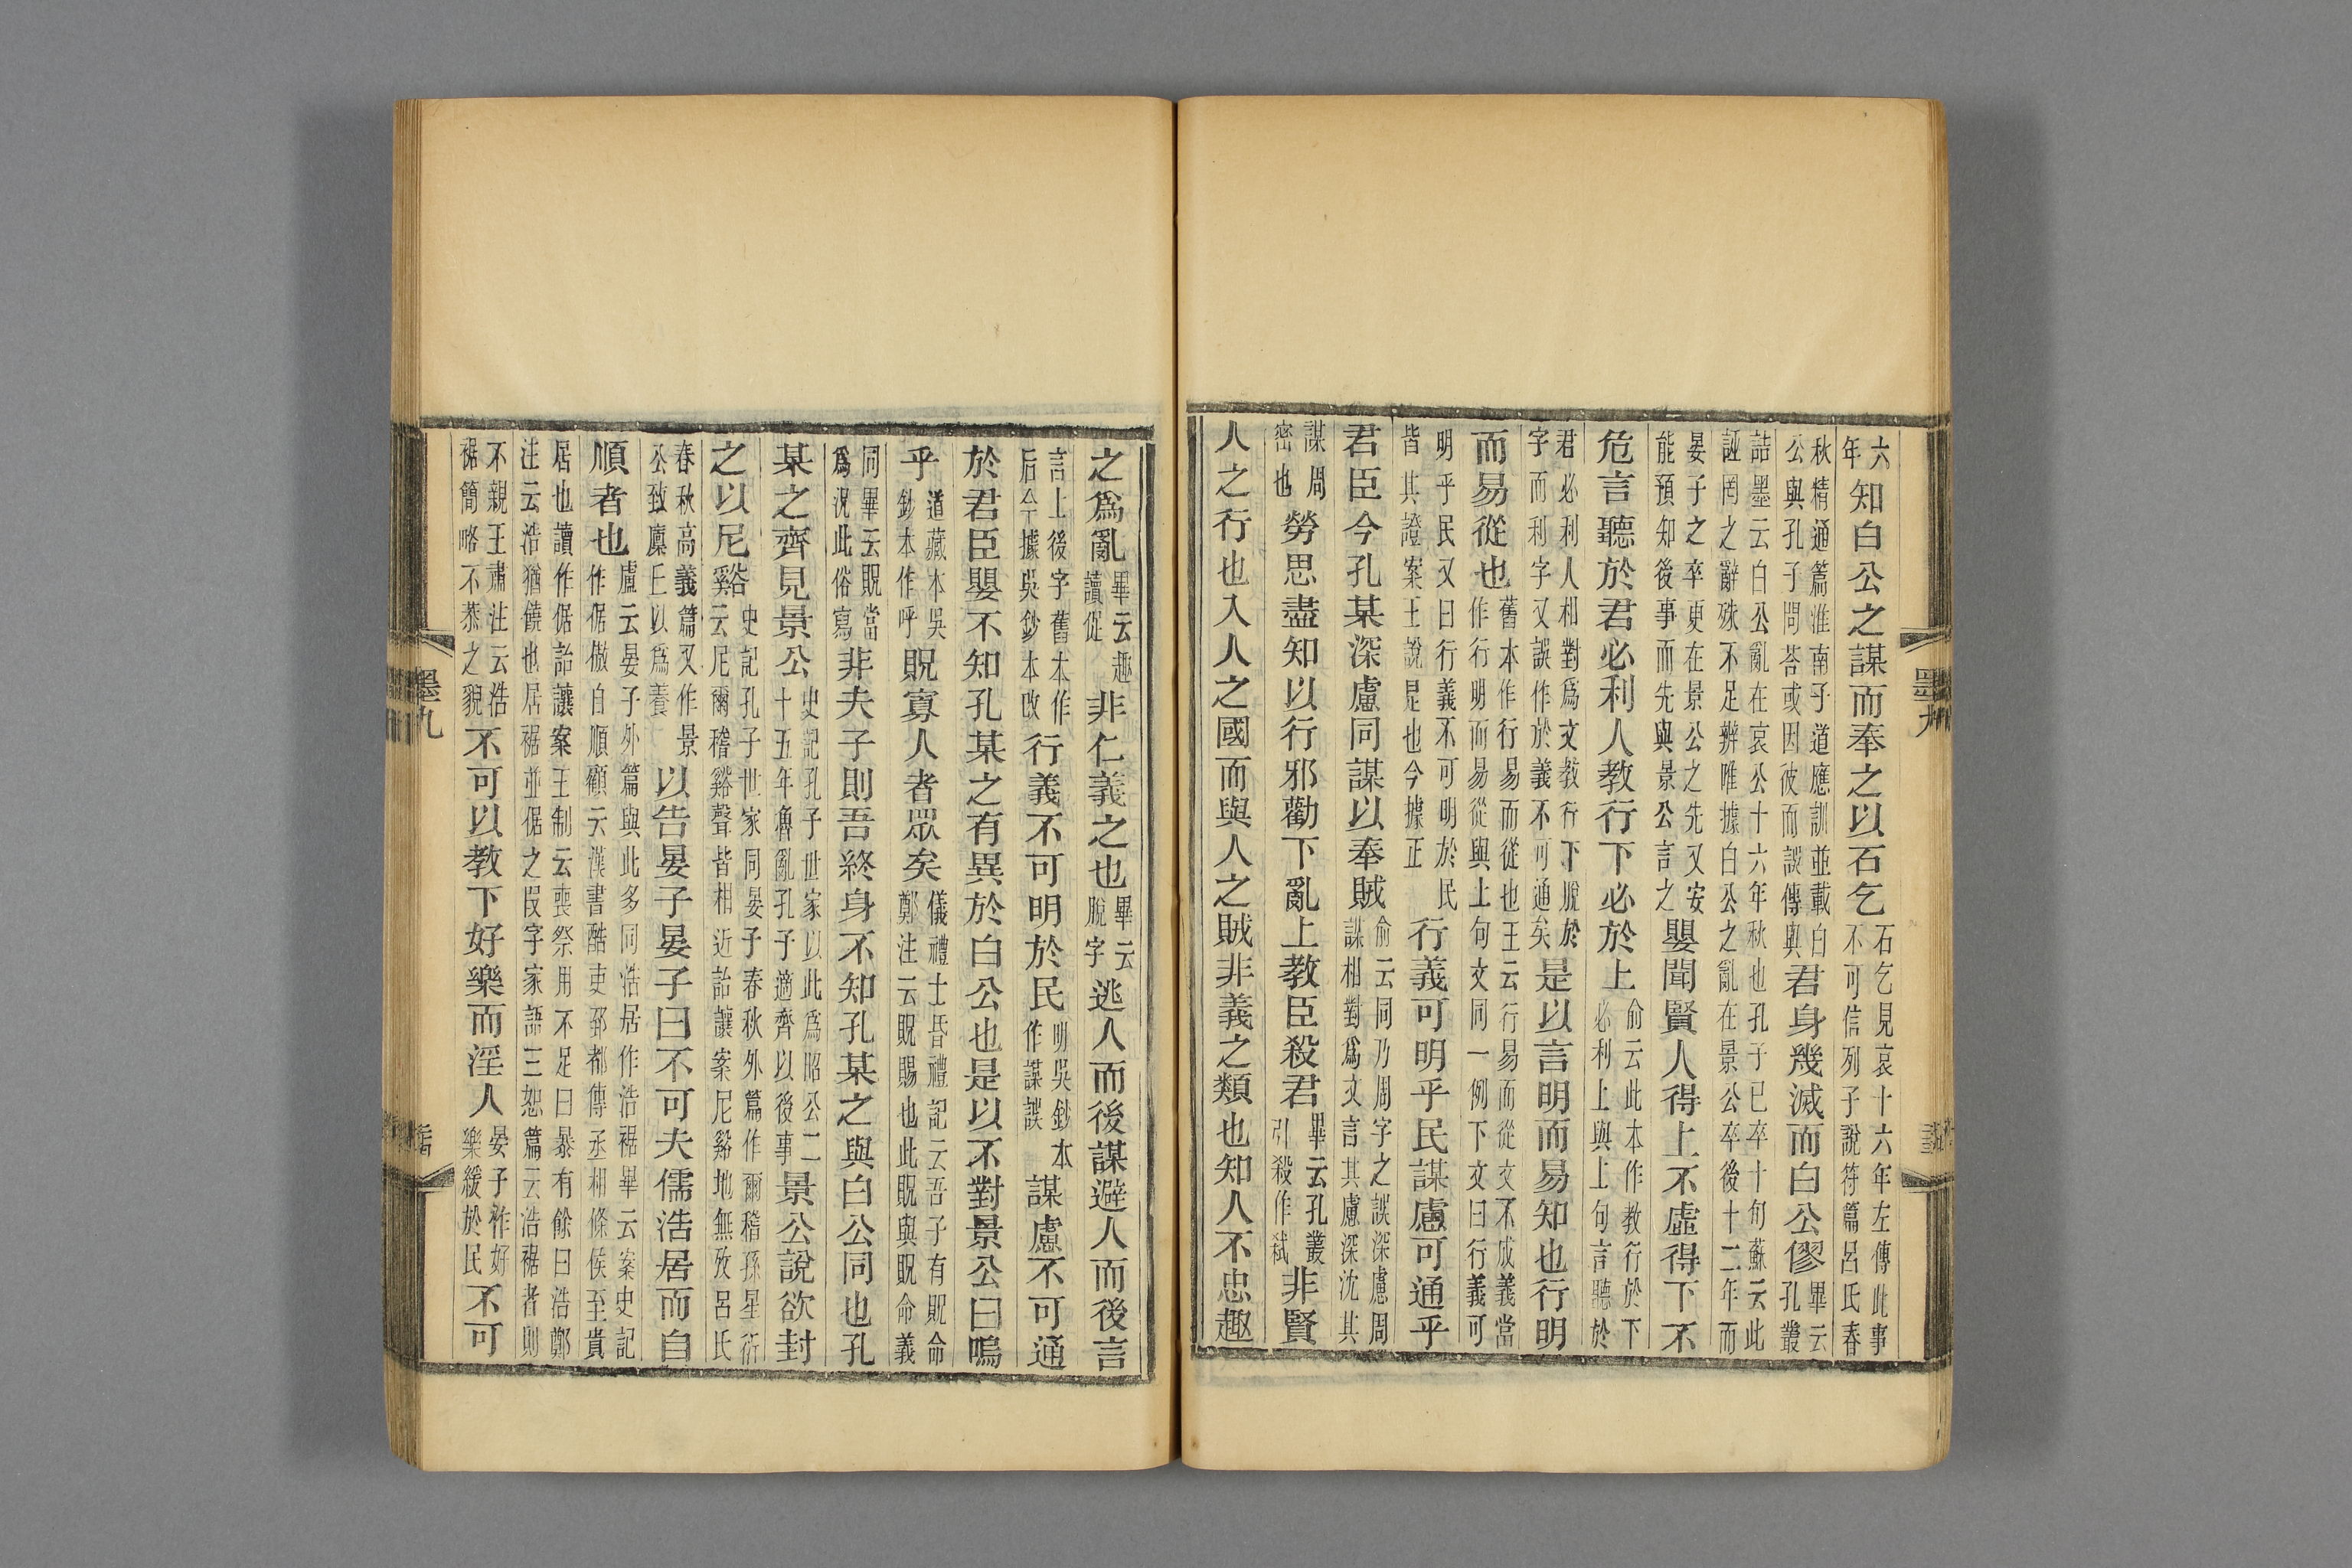 六年知白公之謀而奉之以石乞石乞見哀十六年左傳此事不可信列子說符篇呂氏春
秋精通篇淮南子道應訓並載白公與孔子問荅或因彼而誤傳與君身幾滅而白公僇畢云孔叢
詰墨云白公亂在哀公十六年秋也孔子已卒十旬蘇云此誣罔之辭殊不足辨唯據白公之亂在景公卒後十二年而
晏子之卒更在景公之先又安能預知後事而先與景公言之嬰聞賢人得上不虛得下不
危言聽於君必利人教行下必於上俞云此本作教行於下必利上與上句言聽於
君必利人相對爲文教行下脫於字而利字又誤作於義不可通矣是以言明而易知也行明
而易從也舊本作行易而從也王云行易而從文不成義當作行明而易從與上句文同一例下文曰行義可
明乎民又曰行義不可明於民皆其證案王說是也今據正行義可明乎民謀慮可通乎
君臣今孔某深慮同謀以奉賊俞云同乃周字之誤深慮周謀相對爲文言其慮深沈其
謀周密也勞思盡知以行邪勸下亂上教臣殺君畢云孔叢引殺作弒非賢
人之行也入人之國而與人之賊非義之類也知人不忠趣
之爲亂畢云趣讀促非仁義之也畢云脫字逃人而後謀避人而後言
言上後字舊本作后今據吳鈔本改行義不可明於民明吳鈔本作謀誤謀慮不可通
於君臣嬰不知孔某之有異於白公也是以不對景公曰嗚
乎道藏本吳鈔本作呼貺寡人者眾矣儀禮士昏禮記云吾子有貺命鄭注云貺賜也此貺與貺命義
同畢云貺當爲況此俗寫非夫子則吾終身不知孔某之與白公同也孔
某之齊見景公史記孔子世家以此爲昭公二十五年魯亂孔子適齊以後事景公說欲封
之以尼谿史記孔子世家同晏子春秋外篇作爾稽孫星衍云尼爾稽谿聲皆相近詒讓案尼谿地無攷呂氏
春秋高義篇又作景公致廩丘以爲養以告晏子晏子曰不可夫儒浩居而自
順者也盧云晏子外篇與此多同浩居作浩裾畢云案史記作倨傲自順顧云漢書酷吏郅都傳丞相條侯至貴
居也讀作倨詒讓案王制云喪祭用不足曰暴有餘曰浩鄭注云浩猶饒也居裾並倨之叚字家語三恕篇云浩裾者則
不親王肅注云浩裾簡略不恭之貌不可以教下好樂而淫人晏子作好樂緩於民不可
墨九
墨九